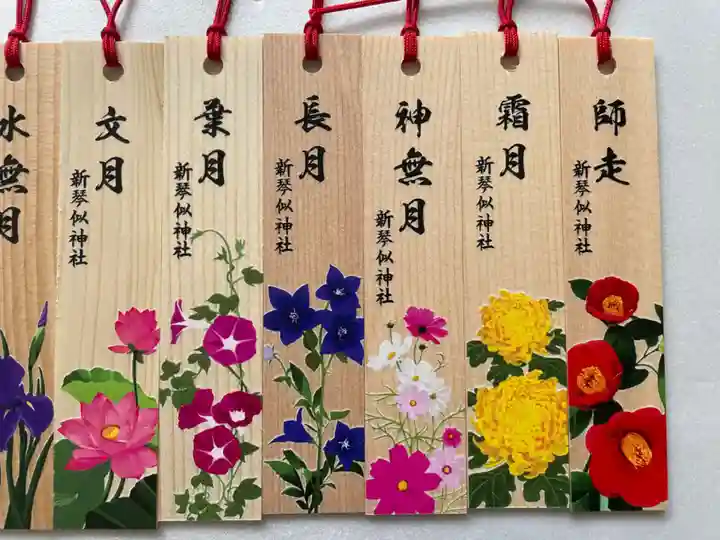 水無月
文月
新琴似神社
葉月
新琴似神社
長月
新琴似神社
神無月
新琴似神社
霜月
新琴似神社
師走
新琴似神社